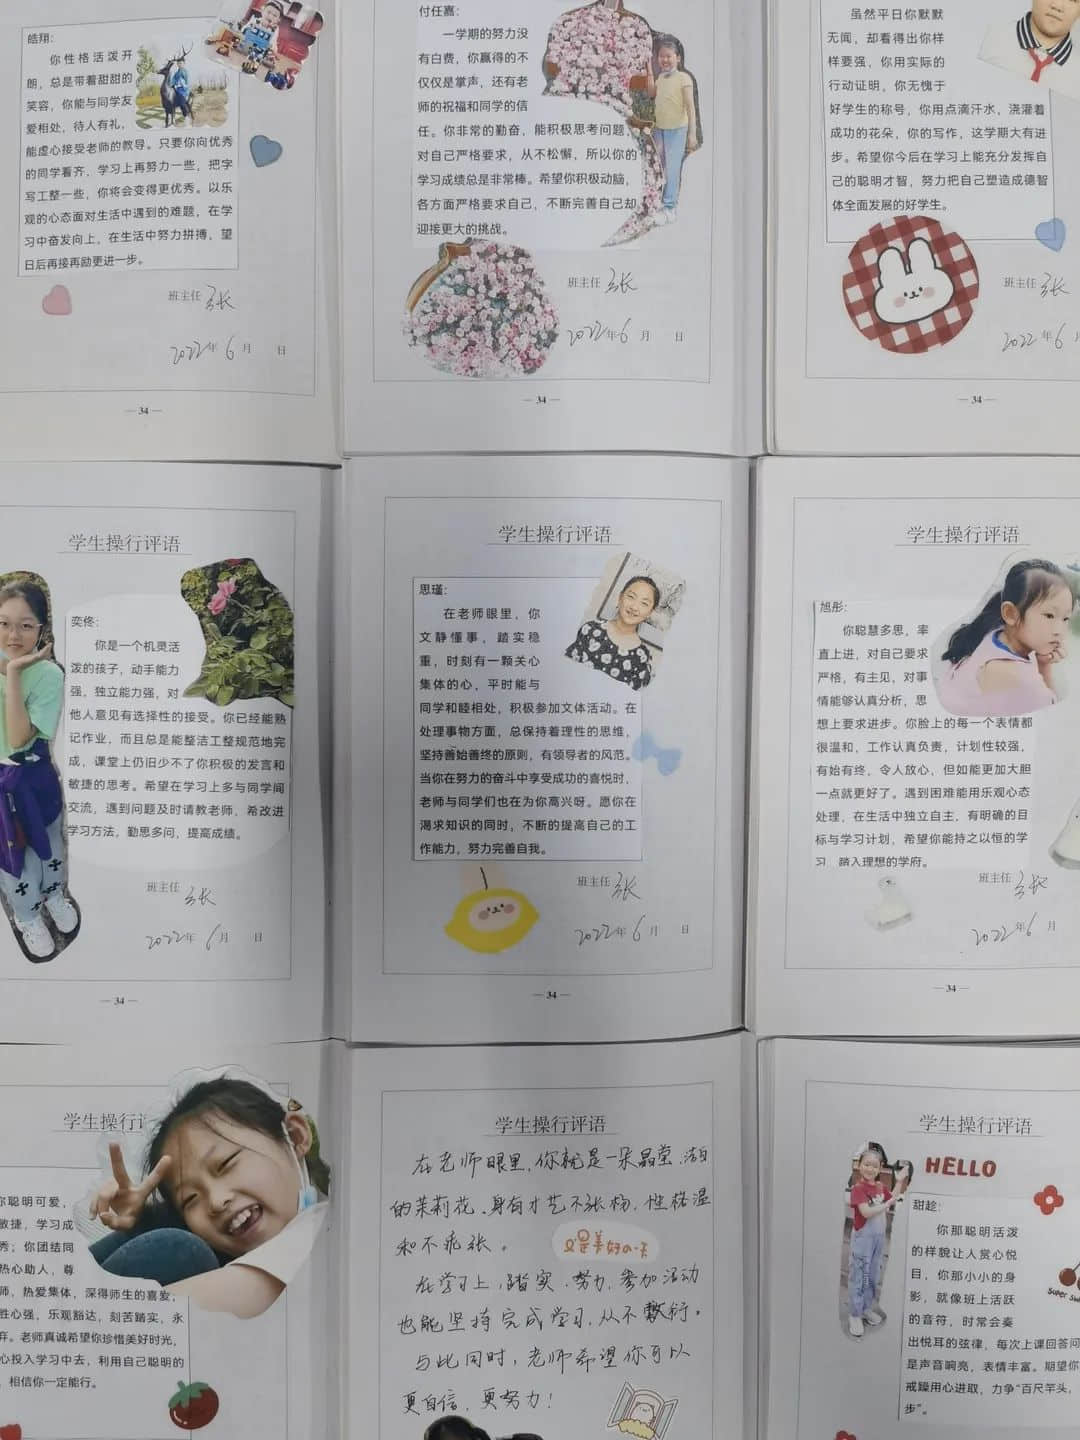 皓翔：
你性格活泼开
朗，总是带着甜甜的
笑容，你能与同学友
爱相处，待人有礼，
能虚心接受老师的教导。只要你向优秀
的同学看齐，学习上再努力一些，把字
写工整一些，你将会变得更优秀。以乐
观的心态面对生活中遇到的难题，在学
习中奋发向上，在生活中努力拼搏，望
日后再接再励更进一步。
班主任 张
2022年 6 月 日
— 34 —
付任嘉：
一学期的努力没
有白费，你赢得的不
仅仅是掌声，还有老
师的祝福和同学的信
任。你非常的勤奋，能积极思考问题，
对自己严格要求，从不松懈，所以你的
学习成绩总是非常棒。希望你积极动脑，
各方面严格要求自己，不断完善自己却
迎接更大的挑战。
班主任 张
2022年 6 月 日
— 34 —
虽然平日你默默
无闻，却看得出你样
样要强，你用实际的
行动证明，你无愧于
好学生的称号，你用点滴汗水，浇灌着
成功的花朵，你的写作，这学期大有进
步。希望你今后在学习上能充分发挥自
己的聪明才智，努力把自己塑造成德智
体全面发展的好学生。
班主任 张
2022年 6 月
— 34 —
学生操行评语
奕佟：
你是一个机灵活
泼的孩子，动手能力
强，独立能力强，对
他人意见有选择性的接受。你已经能熟
记作业，而且总是能整洁工整规范地完
成，课堂上仍旧少不了你积极的发言和
敏捷的思考。希望在学习上多与同学间
交流，遇到问题及时请教老师，希改进
学习方法，勤思多问，提高成绩。
班主任 张
2022年 6 月 日
— 34 —
学生操行评语
思瑾：
在老师眼里，你
文静懂事，踏实稳
重，时刻有一颗关心
集体的心，平时能与
同学和睦相处，积极参加文体活动。在
处理事物方面，总保持着理性的思维，
坚持善始善终的原则，有领导者的风范。
当你在努力的奋斗中享受成功的喜悦时，
老师与同学们也在为你高兴呀。愿你在
渴求知识的同时，不断的提高自己的工
作能力，努力完善自我。
班主任 张
2022年 6 月 日
— 34 —
学生操行评语
旭彤：
你聪慧多思，率
直上进，对自己要求
严格，有主见，对事
情能够认真分析，思
想上要求进步。你脸上的每一个表情都
很温和，工作认真负责，计划性较强，
有始有终，令人放心，但如能更加大胆
一点就更好了。遇到困难能用乐观心态
处理，在生活中独立自主，有明确的目
标与学习计划，希望你能持之以恒的学
习，踏入理想的学府。
班主任 张
2022年 6 月
— 34 —
学生操行评
你聪明可爱，
敏捷，学习成
秀；你团结同
热心助人，尊
师，热爱集体，深得师生的喜爱；
胜心强，乐观豁达，刻苦踏实，永
弃。老师真诚希望你珍惜美好时光，
心投入学习中去，利用自己聪明的
，相信你一定能行。
学生操行评语
在老师眼里，你就是一朵晶莹、洁白
的茉莉花，身有才艺不张扬，性格温
和不乖张。
又是美好的一天
在学习上，踏实、努力，参加活动
也能坚持完成学习，从不敷衍。
与此同时，老师希望你可以
更自信，更努力！
学生操行评语
HELLO
甜趁：
你那聪明活泼
的样貌让人赏心悦
目，你那小小的身
影，就像班上活跃
的音符，时常会奏
出悦耳的弦律，每次上课回答问
是声音响亮，表情丰富。期望你
戒躁用心进取，力争“百尺竿头，
步”。
super sw